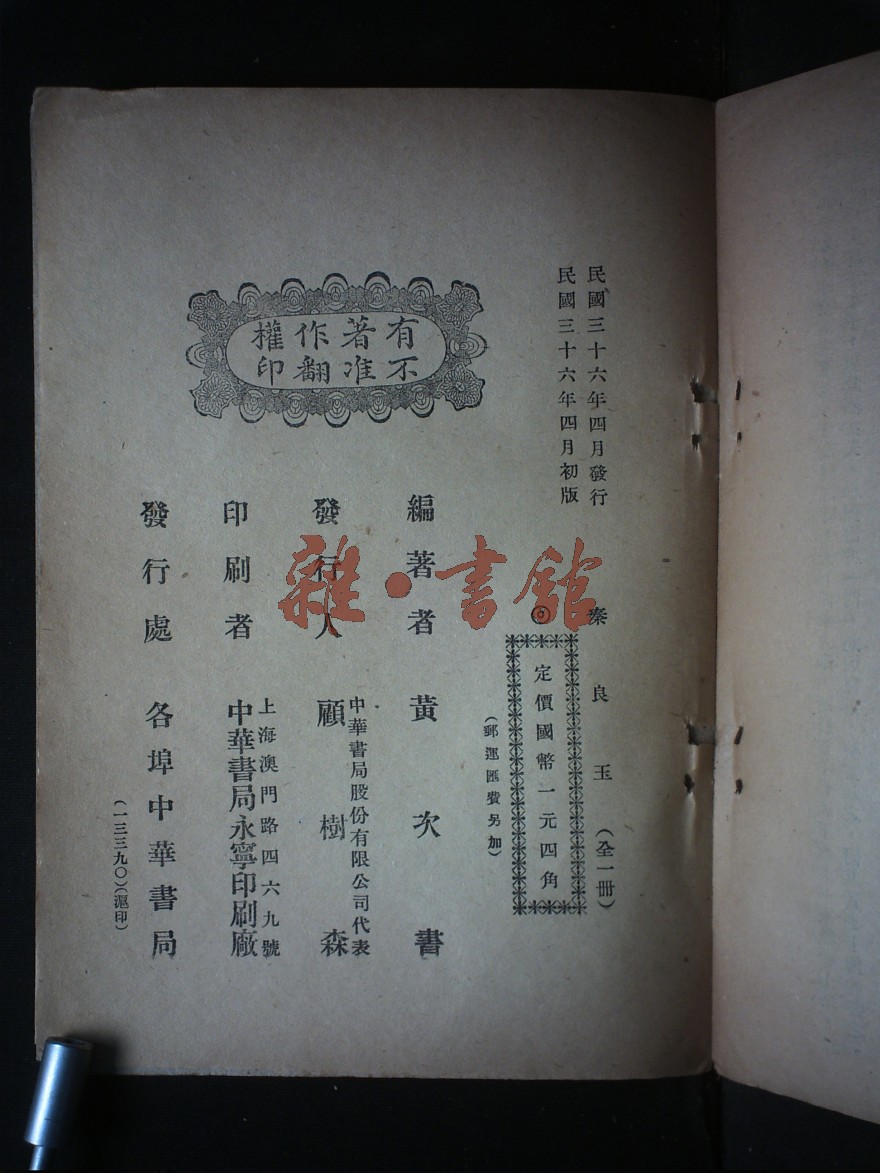 民國三十六年四月發行
民國三十六年四月初版
有著作權
不准翻印
秦良玉（全一冊）
◎定價國幣一元四角
（郵運匯費另加）
編著者 黃次書
發行人 中華書局股份有限公司代表
顧樹森
印刷者 上海澳門路四六九號
中華書局永寧印刷廠
發行處 各埠中華書局
（一三三九〇）（滬印）
雜·書館